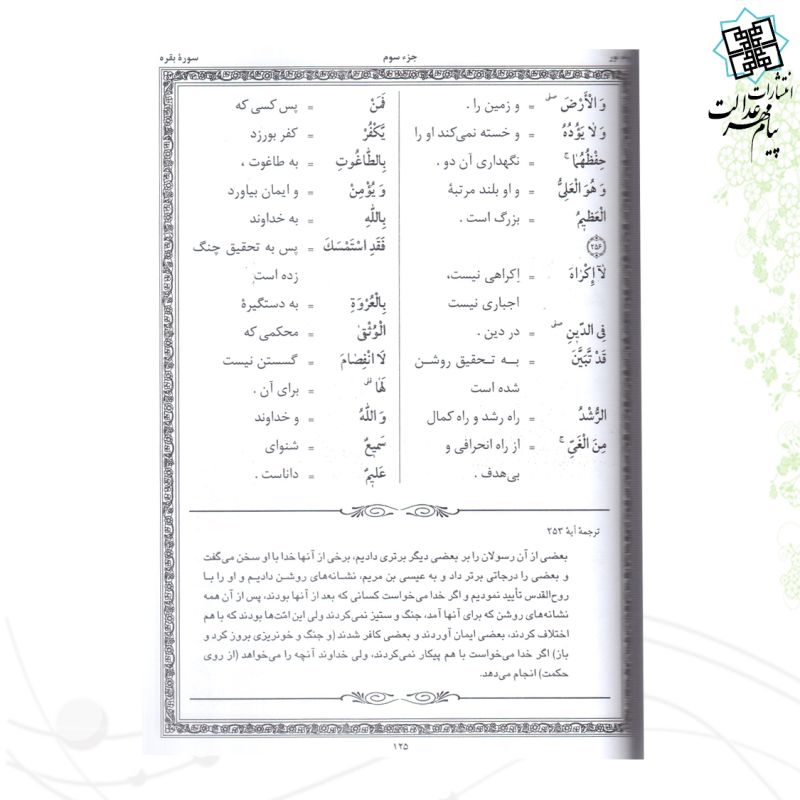 انتشارات
پیام مهر عدالت
جزء سوم
سورهٔ بقره
وَ الْأَرْضَ ۖ = و زمین را .
وَ لَا يَؤُدُهُ = و خسته نمی‌کند او را
حِفْظُهُمَا ۚ = نگهداری آن دو .
وَ هُوَ الْعَلِيُّ = و او بلند مرتبهٔ
الْعَظِيمُ = بزرگ است .
۲۵۶
لَآ إِكْرَاهَ = اِکراهی نیست،
اجباری نیست
فِي الدِّينِ ۖ = در دین .
قَدْ تَّبَيَّنَ = بـه تـحقیق روشـن
شده است
الرُّشْدُ = راه رشد و راه کمال
مِنَ الْغَيِّ ۚ = از راه انحرافی و
بی‌هدف .
فَمَنْ = پس کسی که
يَّكْفُرْ = کفر بورزد
بِالطَّاغُوتِ = به طاغوت ،
وَ يُؤْمِنْ = و ایمان بیاورد
بِاللّٰهِ = به خداوند
فَقَدِ اسْتَمْسَكَ = پس به تحقیق چنگ
زده است
بِالْعُرْوَةِ = به دستگیرهٔ
الْوُثْقىٰ = محکمی که
لَا انْفِصَامَ = گسستن نیست
لَهَا ۗ = برای آن .
وَ اللّٰهُ = و خداوند
سَمِيعٌ = شنوای
عَلِيمٌ = داناست .
ترجمهٔ آیهٔ ۲۵۳
بعضی از آن رسولان را بر بعضی دیگر برتری دادیم، برخی از آنها خدا با او سخن می‌گفت
و بعضی را درجاتی برتر داد و به عیسی بن مریم، نشانه‌های روشن دادیم و او را با
روح‌القدس تأیید نمودیم و اگر خدا می‌خواست کسانی که بعد از آنها بودند، پس از آن همه
نشانه‌های روشن که برای آنها آمد، جنگ و ستیز نمی‌کردند ولی این امّت‌ها بودند که با هم
اختلاف کردند، بعضی ایمان آوردند و بعضی کافر شدند (و جنگ و خونریزی بروز کرد و
باز) اگر خدا می‌خواست با هم پیکار نمی‌کردند، ولی خداوند آنچه را می‌خواهد (از روی
حکمت) انجام می‌دهد.
۱۲۵